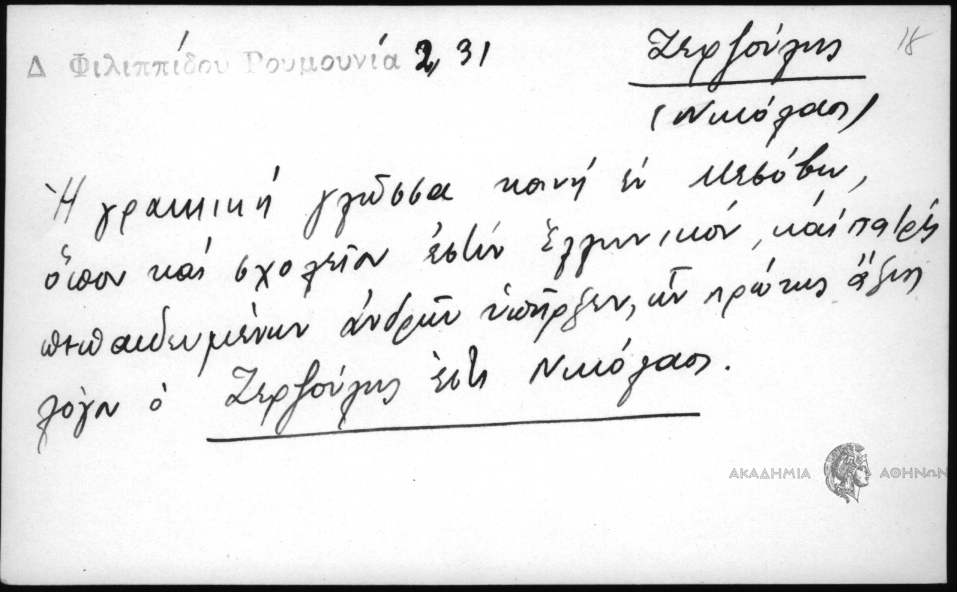 Δ Φιλιππίδου Ρουμουνία 2, 31
Ζερζούλης
18
(Νικόλαος)
Ἡ γραικική γλῶσσα κοινή ἐν Μεσόβῳ,
ὅπου καί σχολεῖον ἐστίν ἑλληνικόν, καί πατρίς
πεπαιδευμένων ἀνδρῶν ὑπῆρξεν, ὧν πρώτης ἄξιος
λόγου ὁ Ζερζούλης ἐστί Νικόλαος.
ΑΚΑΔΗΜΙΑ ΑΘΗΝΩΝ